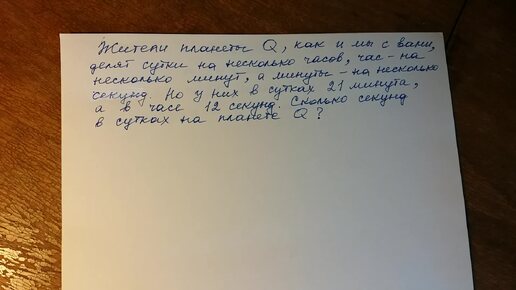 Жители планеты Q, как и мы с вами,
делят сутки на несколько часов, час - на
несколько минут, а минуты - на несколько
секунд. Но у них в сутках 21 минута,
а в часе 12 секунд. Сколько секунд
в сутках на планете Q?